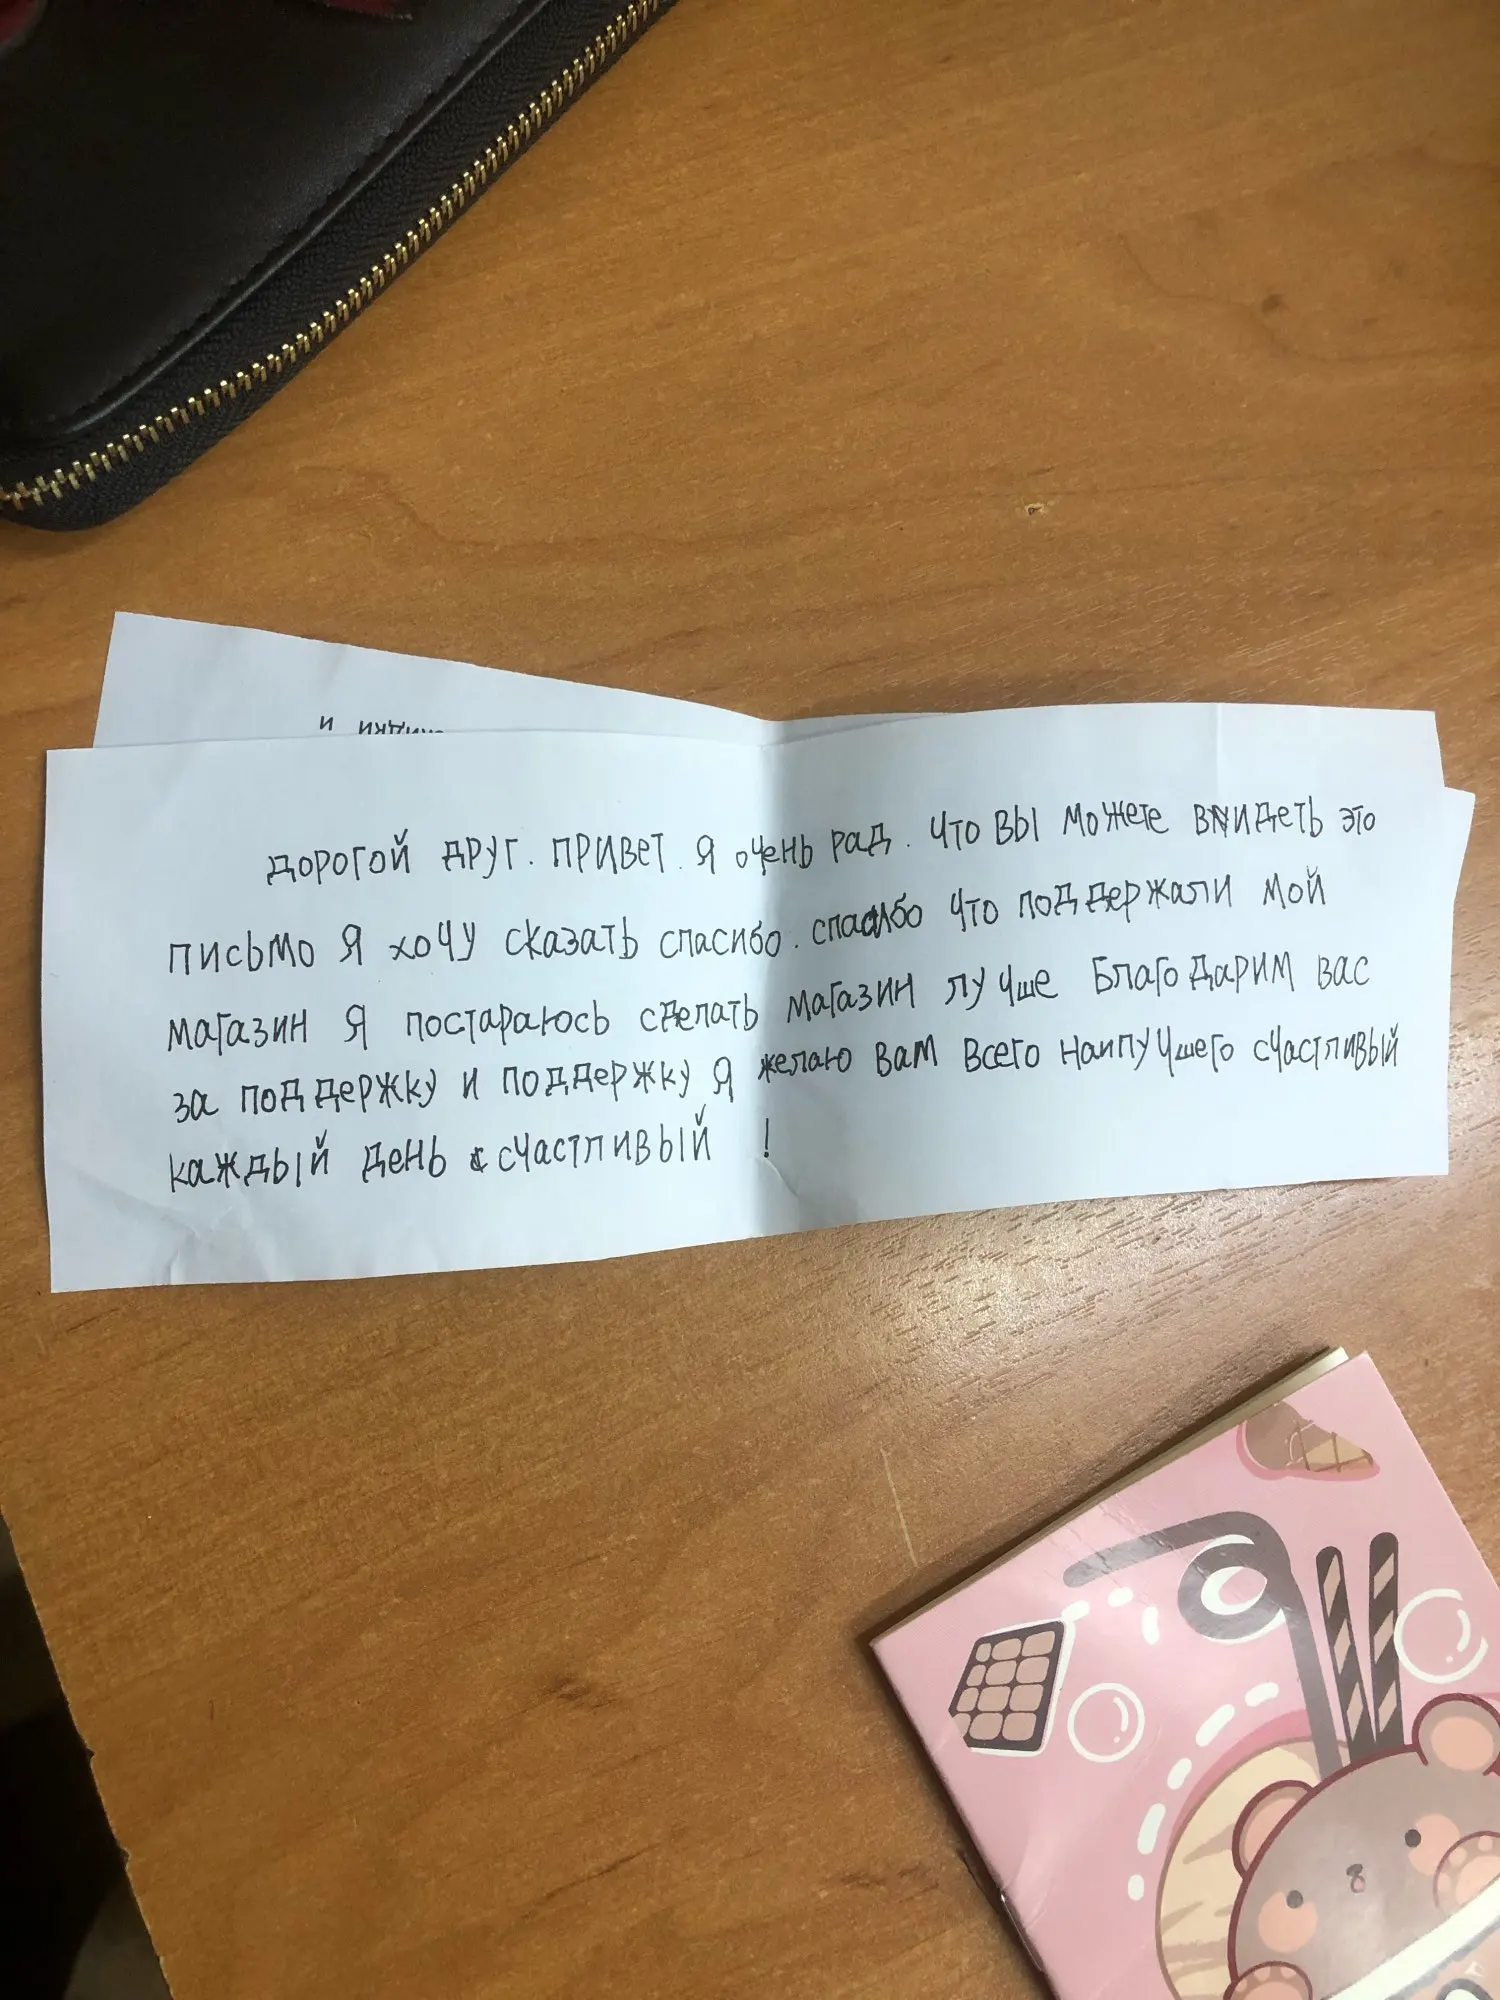 скидки и
дорогой друг. привет. я очень рад. что вы можете видеть это
письмо я хочу сказать спасибо. спасибо что поддержали мой
магазин я постараюсь сделать магазин лучше благодарим вас
за поддержку и поддержку я желаю вам всего наилучшего счастливый
каждый день счастливый !